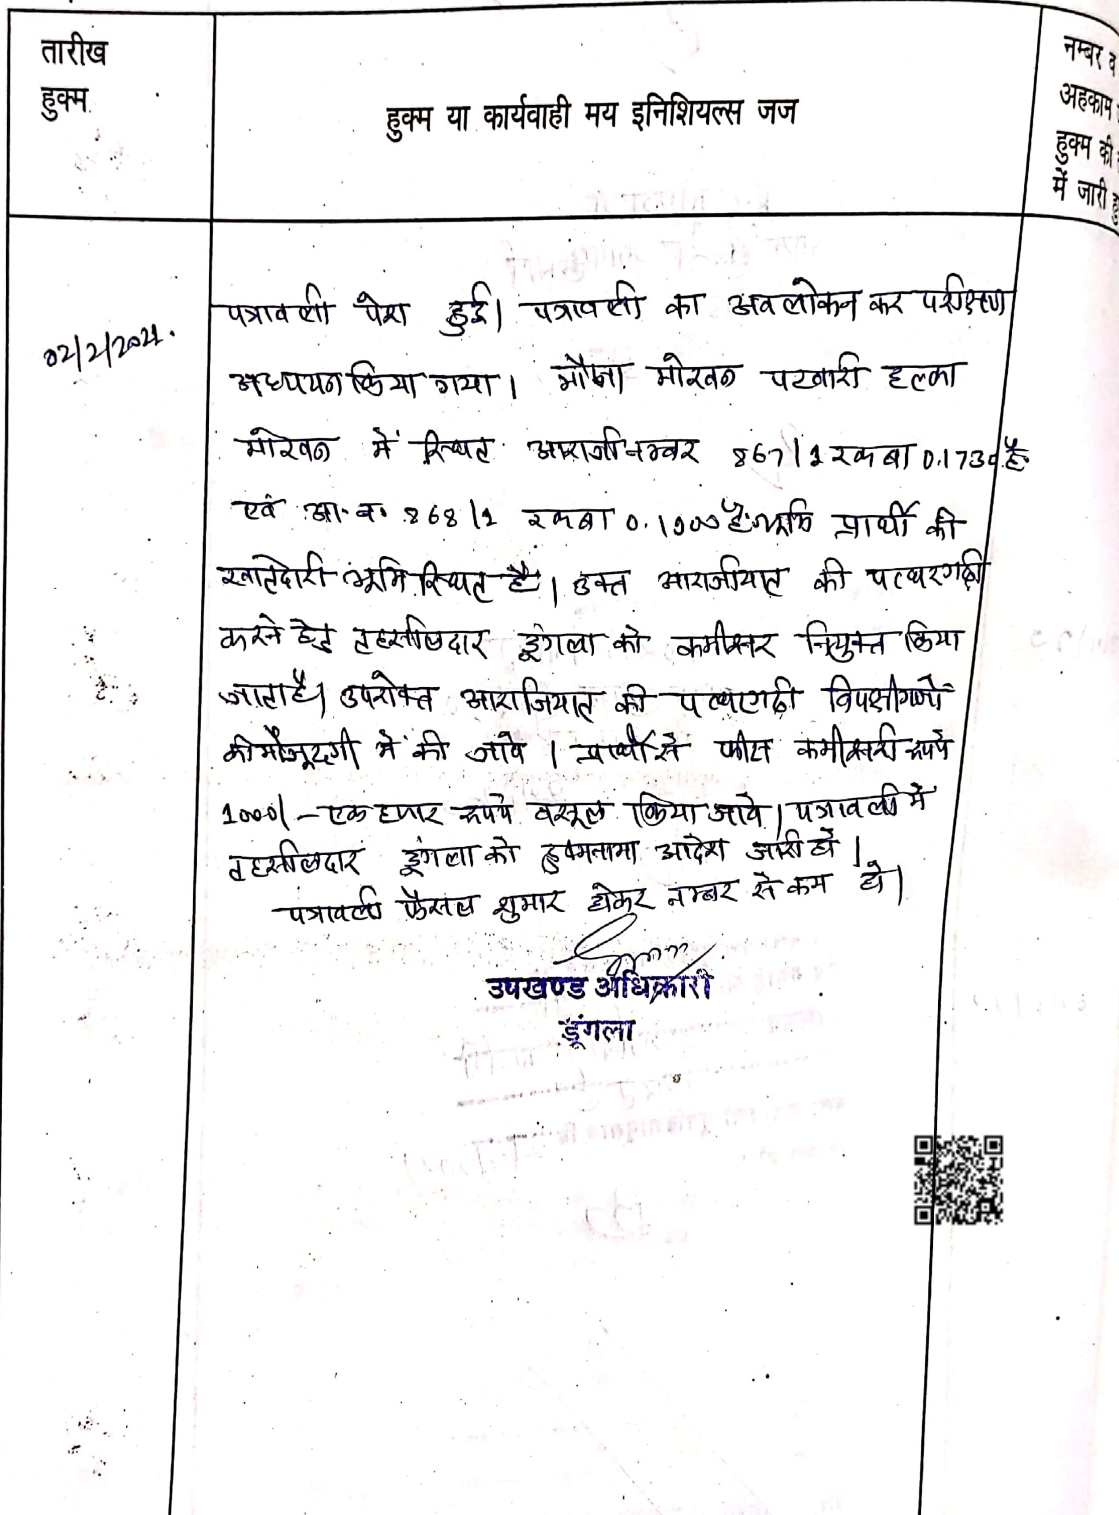 तारीख
हुक्म
हुक्म या कार्यवाही मय इनिशियल्स जज
नम्बर व
अहकाम
हुक्म की
में जारी
02/2/2021.
पत्रावली पेश हुई। पत्रावली का अवलोकन कर परीक्षण
अध्ययन किया गया। मौजा मोरवन पटवारी हल्का
मोरवन में स्थित आराजी नम्बर 867/1 रकबा 0.1730 है.
एवं आ.न. 868/1 रकबा 0.1900 है. भूमि प्रार्थी की
खातेदारी भूमि स्थित है। उक्त आराजीयात की पत्थरगढी
करने हेतु तहसीलदार डूंगला को कमीश्नर नियुक्त किया
जाता है। उपरोक्त आराजियात की पत्थरगढी विपक्षीगणों
की मौजूदगी में की जावे। प्रार्थी से फीस कमीश्नरी रूपये
1000/- एक हजार रूपये वसूल किया जावे। पत्रावली में
तहसीलदार डूंगला को हुक्मनामा आदेश जारी हो।
पत्रावली फैसल शुमार होकर नम्बर से कम हो।
उपखण्ड अधिकारी
डूंगला